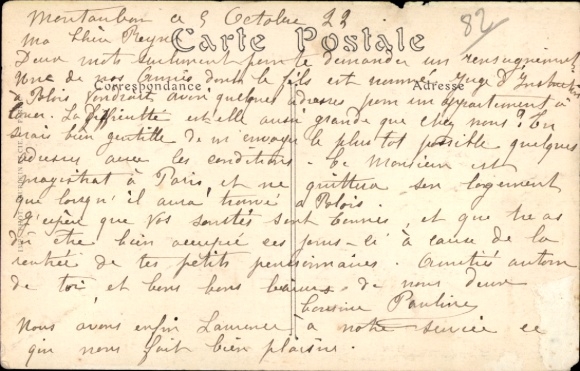 Montauban ce 5 Octobre 22
82
ma chère Reyne
Carte Postale
Deux mots seulement pour te demander un renseignement
Une de nos Amies dont le fils est nommé Juge d'Instruction
Correspondance
Adresse
à Blois voudrait avoir quelques adresses pour un appartement à
louer. La difficulté est elle aussi grande que chez nous? Tu
serais bien gentille de m'envoyer le plus tôt possible quelques
adresses avec les conditions. Ce Monsieur est
magistrat à Paris, et ne quittera son logement
que lorsqu'il aura trouvé à Blois.
J'espère que vos santés sont bonnes, et que tu as
dû être bien occupée ces jours-ci à cause de la
rentrée de tes petits pensionnaires. Amitiés autour
de toi et bons bons baisers de nous deux
Cousine Pauline
Nous avons enfin à notre service ce
qui nous fait bien plaisir.